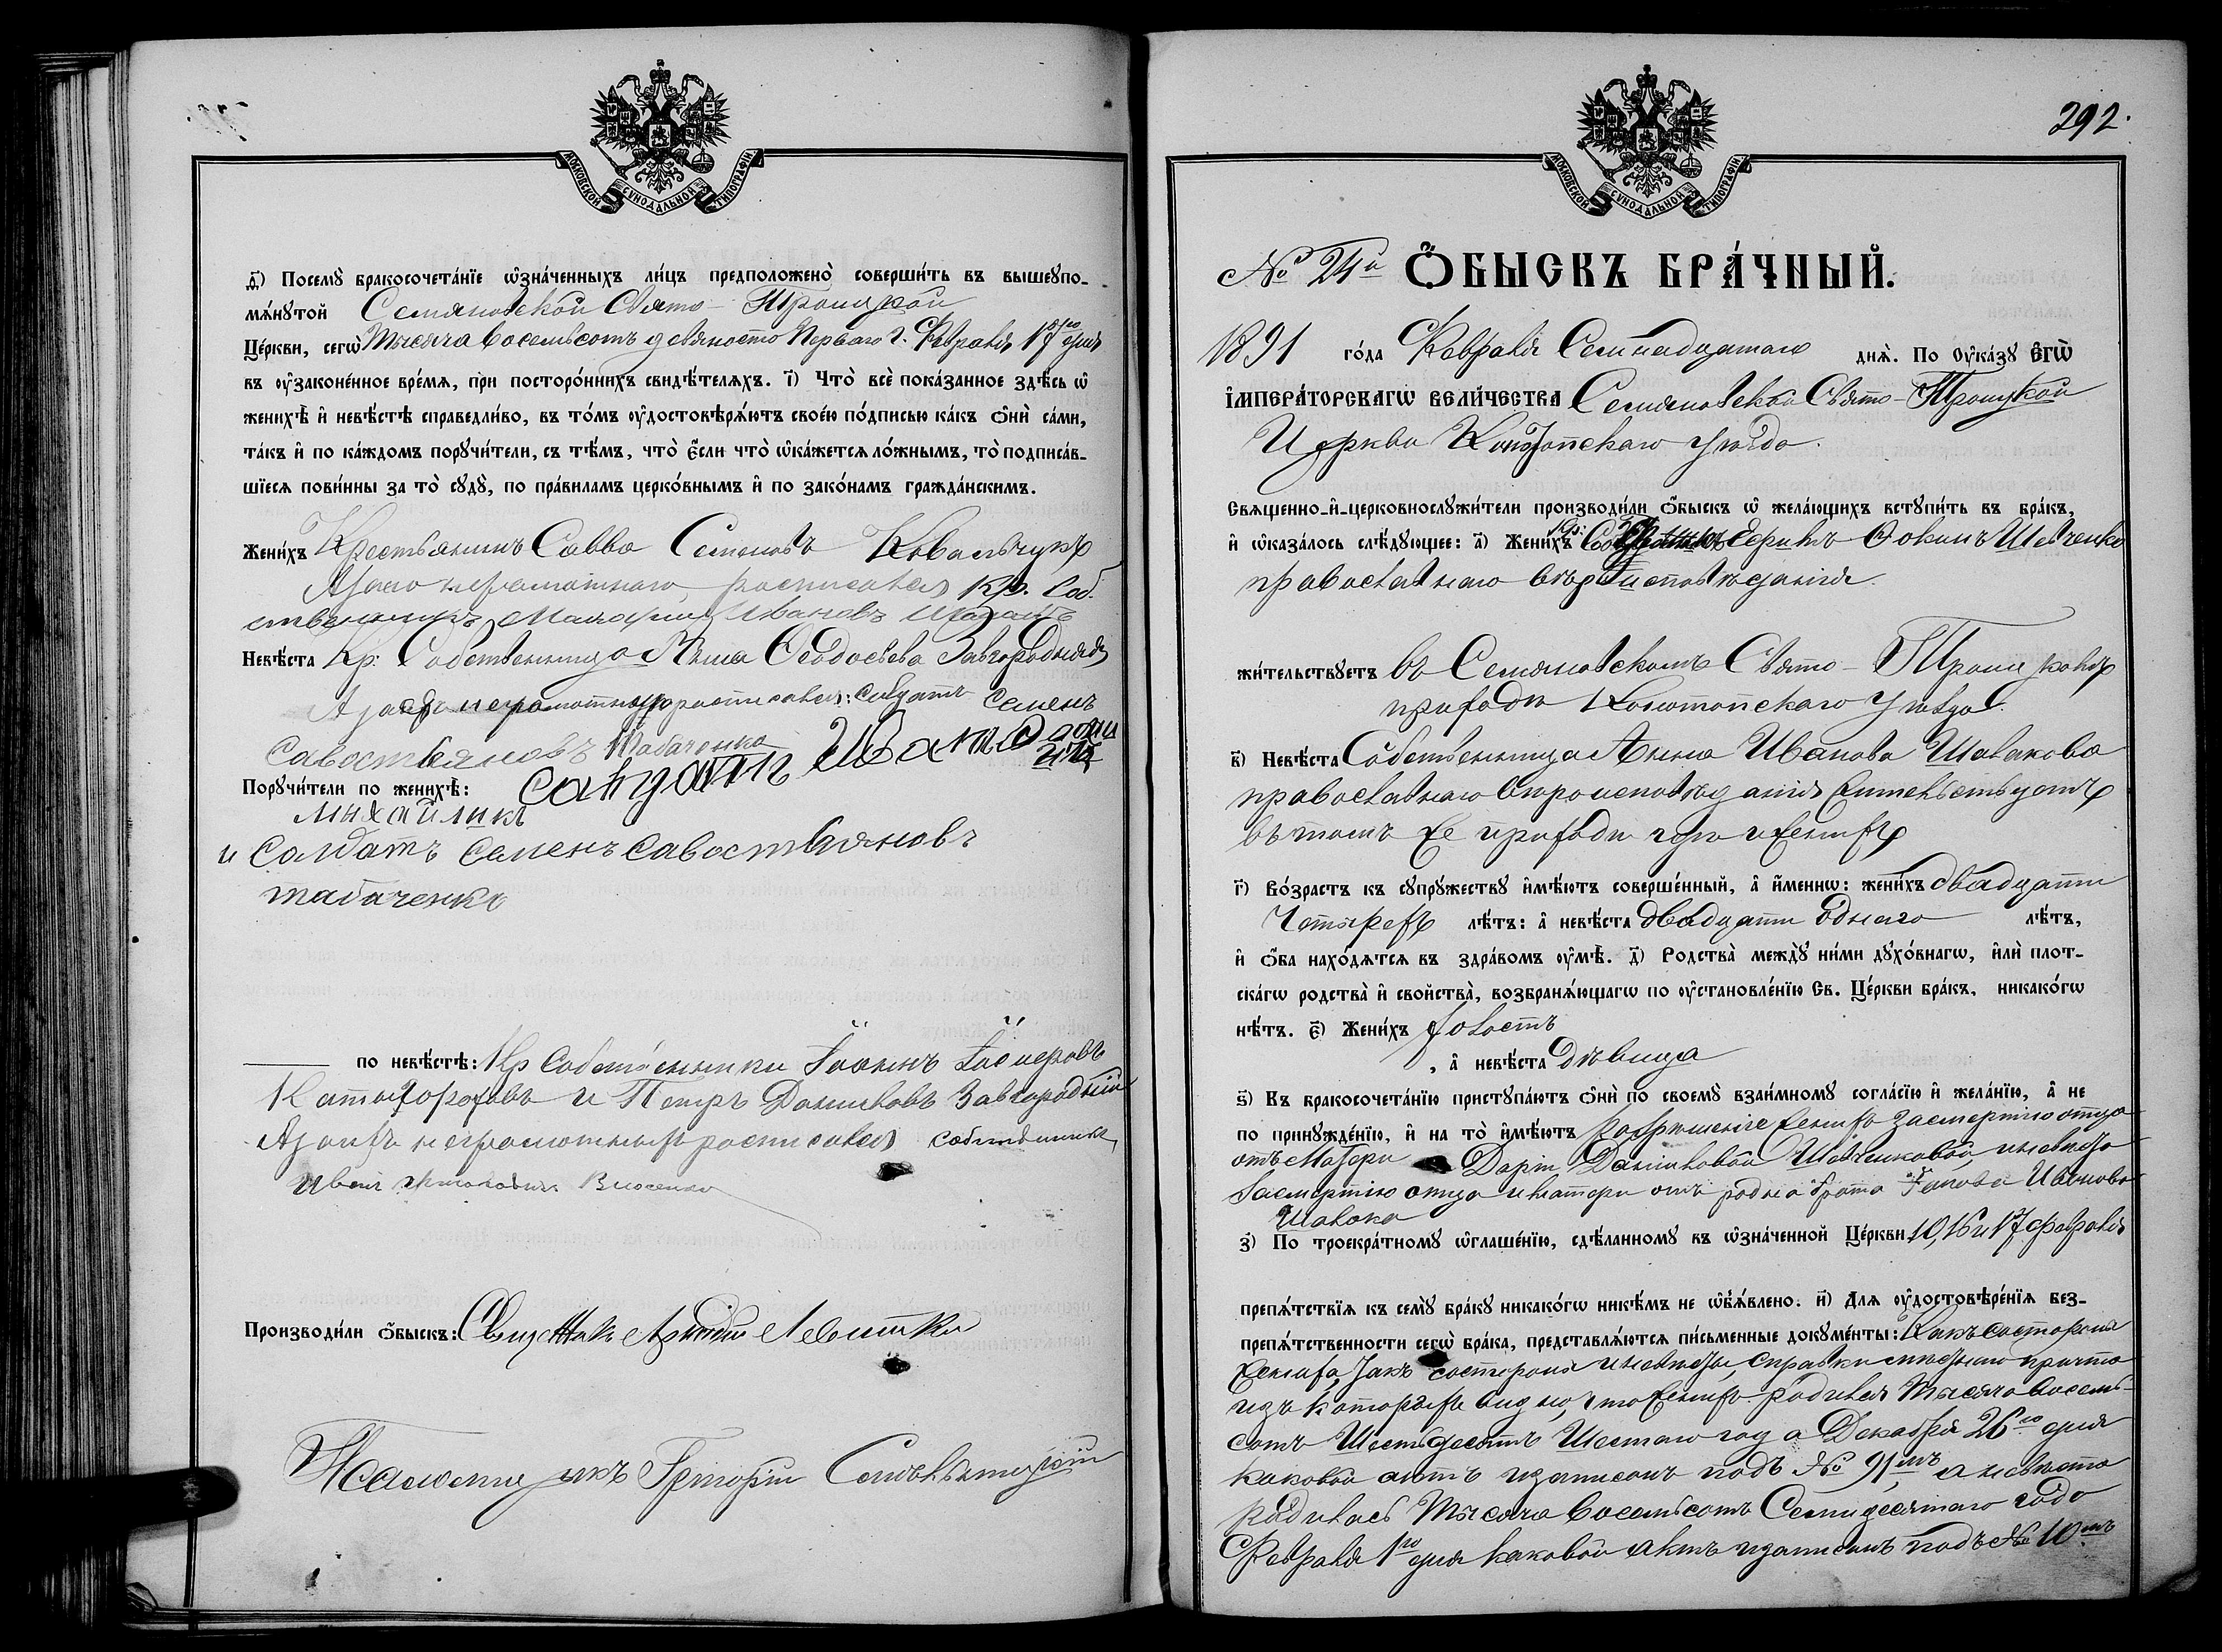 МОСКОВСКОЙ СѴНОДАЛЬНОЙ ТИПОГРАФІИ
д҃) Посемꙋ̀ бракосочета́нїе ѡ҆зна́ченныхъ ли́цъ предположено̀ соверши́ть въ вышеꙋпо-
мѧ́нꙋтой Семяновской Свято-Троицкой
Це́ркви, сегѡ̀ Тысяча восемьсотъ девяносто перваго г. Февраля 17го дня
въ ᲂу҆законе́нное вре́мѧ, при посторо́ннихъ свидѣ́телѧхъ. і҃) Что̀ всѐ пока́занное здѣ́сь ѡ҆
женихѣ̀ и҆ невѣ́стѣ справедли́во, въ то́мъ ᲂу҆достовѣрѧ́ютъ свое́ю по́дписью ка́къ ѻ҆нѝ са́ми,
та́къ и҆ по ка́ждомъ порꙋчи́тели, съ тѣ́мъ, что̀ є҆́сли что̀ ѡ҆ка́жетсѧ ло́жнымъ, то̀ подписа́в-
шїесѧ пови́нны за то̀ сꙋдꙋ̀, по пра́виламъ церко́внымъ и҆ по зако́намъ гражда́нскимъ.
Жени́хъ Крестьянинъ Савва Семеновъ Ковальчукъ
А за него неграмотнаго росписался Кр. соб-
ственникъ Ивановъ
Невѣ́ста Кр: Собственница Анна Ѳеодосьева Завгородняя
А за неграмотную росписался: солдатъ Семенъ
Савостьяновъ Табаченко
Порꙋчи́тели по женихѣ̀: салдатъ Иван
михайликъ
и Солдатъ Семенъ Савостьяновъ
табаченко
по невѣ́стѣ: Кр собственники Іоаннъ
и Петръ Даниловъ Завгородній
А за нихъ неграмотныхъ росписался собственникъ
Иванъ
Производи́ли ѻ҆́быскъ: Священникъ Левитски
Псаломщикъ Григорій
292.
МОСКОВСКОЙ СѴНОДАЛЬНОЙ ТИПОГРАФІИ
№ 24й Ѻ҆́БЫСКЪ БРА́ЧНЫЙ.
1891 го́да Февраля Семнадцатаго днѧ̀. По Оу҆ка́зꙋ Є҆гѡ̀
І҆мпера́торскагѡ Вели́чества Семяновской Свято-Троицкой
Церкви Конотопскаго уѣзда.
Свѧщенно-и҆-церковнослꙋжи́тели производи́ли ѻ҆́быскъ ѡ҆ жела́ющихъ вступи́ть въ бра́къ,
и҆ ѡ҆каза́лось слѣ́дꙋющее: а҃) Жени́хъ Кр: Ѳокинъ Шевченко
православнаго вѣроисповѣданія
жи́тельствꙋетъ въ Семяновскомъ Свято-Троицкомъ
приходѣ Конотопскаго уѣзда
в҃) Невѣ́ста Собственница Анна Иванова
православнаго вѣроисповѣданія жительствуетъ
въ томъ же приходѣ гдѣ и женихъ
г҃) Во́зрастъ къ сꙋпрꙋ́жествꙋ и҆мѣ́ютъ соверше́нный, а҆ и҆́меннѡ: жени́хъ двадцати
четырехъ лѣ́тъ: а҆ невѣ́ста двадцати однаго лѣ́тъ,
и҆ ѻ҆́ба нахо́дѧтсѧ въ здра́вомъ ᲂу҆мѣ̀. д҃) Родства̀ междꙋ̀ ни́ми дꙋхо́внагѡ, и҆лѝ плот-
ска́гѡ родства̀ и҆ свойства̀, возбранѧ́ющагѡ по ᲂу҆становле́нїю Св. Це́ркви бра́къ, никако́гѡ
нѣ́тъ. є҃) Жени́хъ холостъ
, а҆ невѣ́ста дѣвица
ѕ҃) Къ бракосочета́нїю пристꙋпа́ютъ ѻ҆нѝ по своемꙋ̀ взаи́мномꙋ согла́сїю и҆ жела́нїю, а҆ не
по принꙋжде́нїю, и҆ на то̀ и҆мѣ́ютъ разрѣшеніе женихъ за смертію отца
отъ матери Даріи Даниловой Шевченковой, и невѣста
за смертію отца и матери отъ роднаго брата Іакова Иванова
з҃) По троекра́тномꙋ ѡ҆глаше́нїю, сдѣ́ланномꙋ въ ѡ҆зна́ченной Це́ркви 10, 16 и 17 февраля
препѧ́тствїѧ къ семꙋ̀ бра́кꙋ никако́гѡ никѣ́мъ не ѡ҆б̾ѧ́влено. и҃) Длѧ ᲂу҆достовѣре́нїѧ без-
препѧ́тственности сегѡ̀ бра́ка, представлѧ́ютсѧ пи́сьменные докꙋме́нты: какъ состороны
жениха, такъ состороны и невѣсты, справки мѣстнаго причта
изъ которыхъ видно, что женихъ родился тысяча восемь-
сотъ шестьдесятъ шестаго года Декабря 26го дня
каковой актъ и записанъ подъ № 91мъ, а невѣста
родилась тысяча восемьсотъ Семидесятаго года
Февраля 1го дня каковой актъ и записанъ подъ № 10мъ